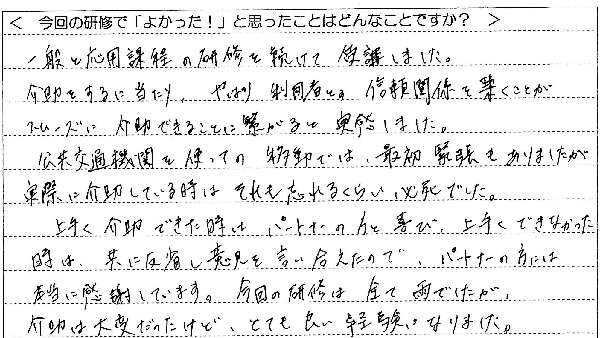 < 今回の研修で「よかった！」と思ったことはどんなことですか？ >
一般と応用課程の研修を続けて受講しました。
介助をするに当たり、やはり利用者との信頼関係を築くことが
スムーズに介助できることに繋がると実感しました。
公共交通機関を使っての移動では、最初緊張もありましたが
実際に介助している時はそれも忘れるくらい必死でした。
上手く介助できた時はパートナーの方と喜び、上手くできなかった
時は、共に反省し意見を言い合えたので、パートナーの方には
本当に感謝しています。今回の研修は全て雨でしたが、
介助は大変だったけど、とても良い経験になりました。